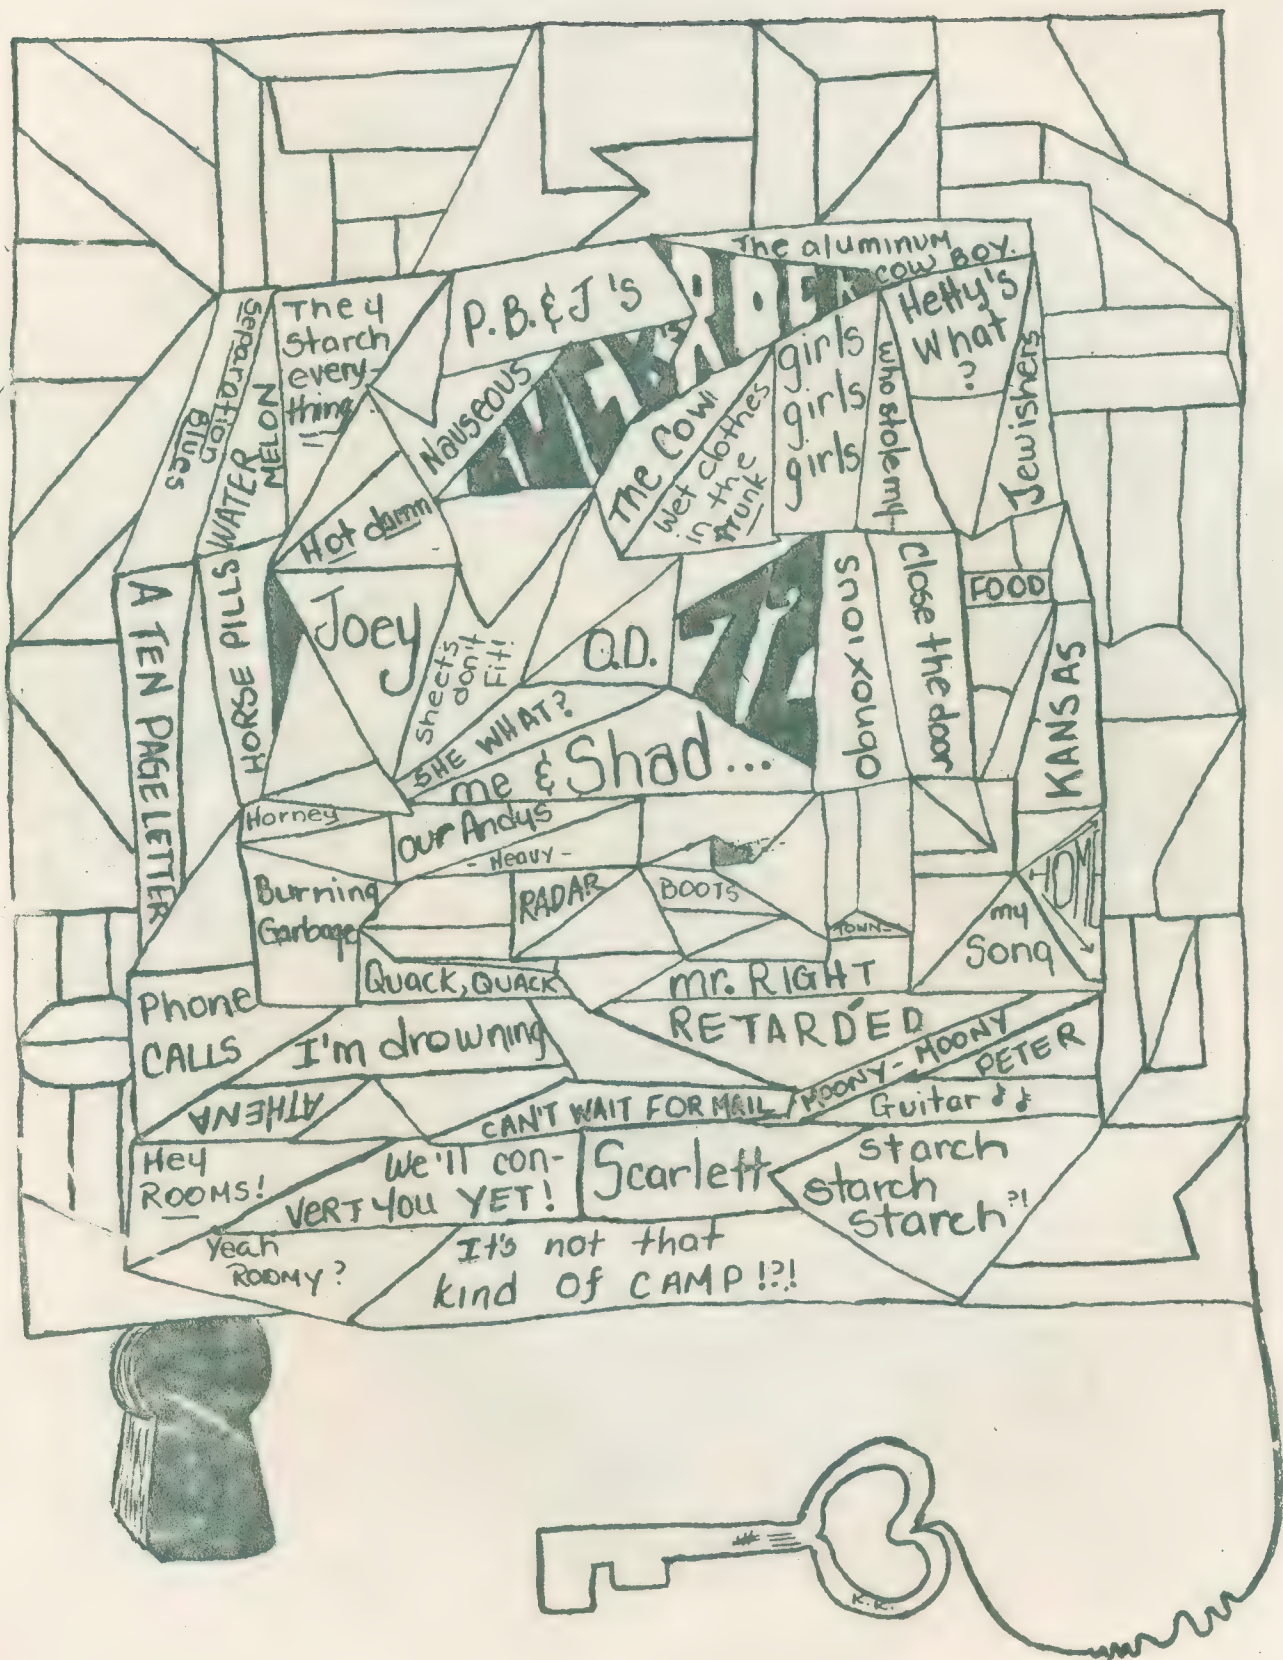 The aluminum
COW BOY.
P.B. & J's
Hetty's
What
?
The 4
Starch
every-
thing
!!
Separation
Blues
WATER
MELON
Nauseous
The Cow!
Wet clothes
in the
trunk
girls
girls
girls
who stole my-
Jewishers
Hot damn
A TEN PAGE LETTER
HORSE PILLS
Joey
Sheets
don't
Fit!
O.D.
'72
obnoxious
Close the door
FOOD
KANSAS
SHE WHAT?
me & Shad...
Horney
our Andys
- Heavy -
Burning
Garbage
RADAR
BOOTS
TOWN-
HOME
my
Song
Quack, QUACK
mr. RIGHT
Phone
CALLS
I'm drowning
RETARDÉD
MOONY-MOONY
PETER
ATHENA
CAN'T WAIT FOR MAIL
Guitar
Hey
ROOMS!
We'll con-
VERT YOU YET!
Scarlett
Starch
Starch
Starch?!
Yeah
ROOMY?
It's not that
kind of CAMP!?!
K.K.